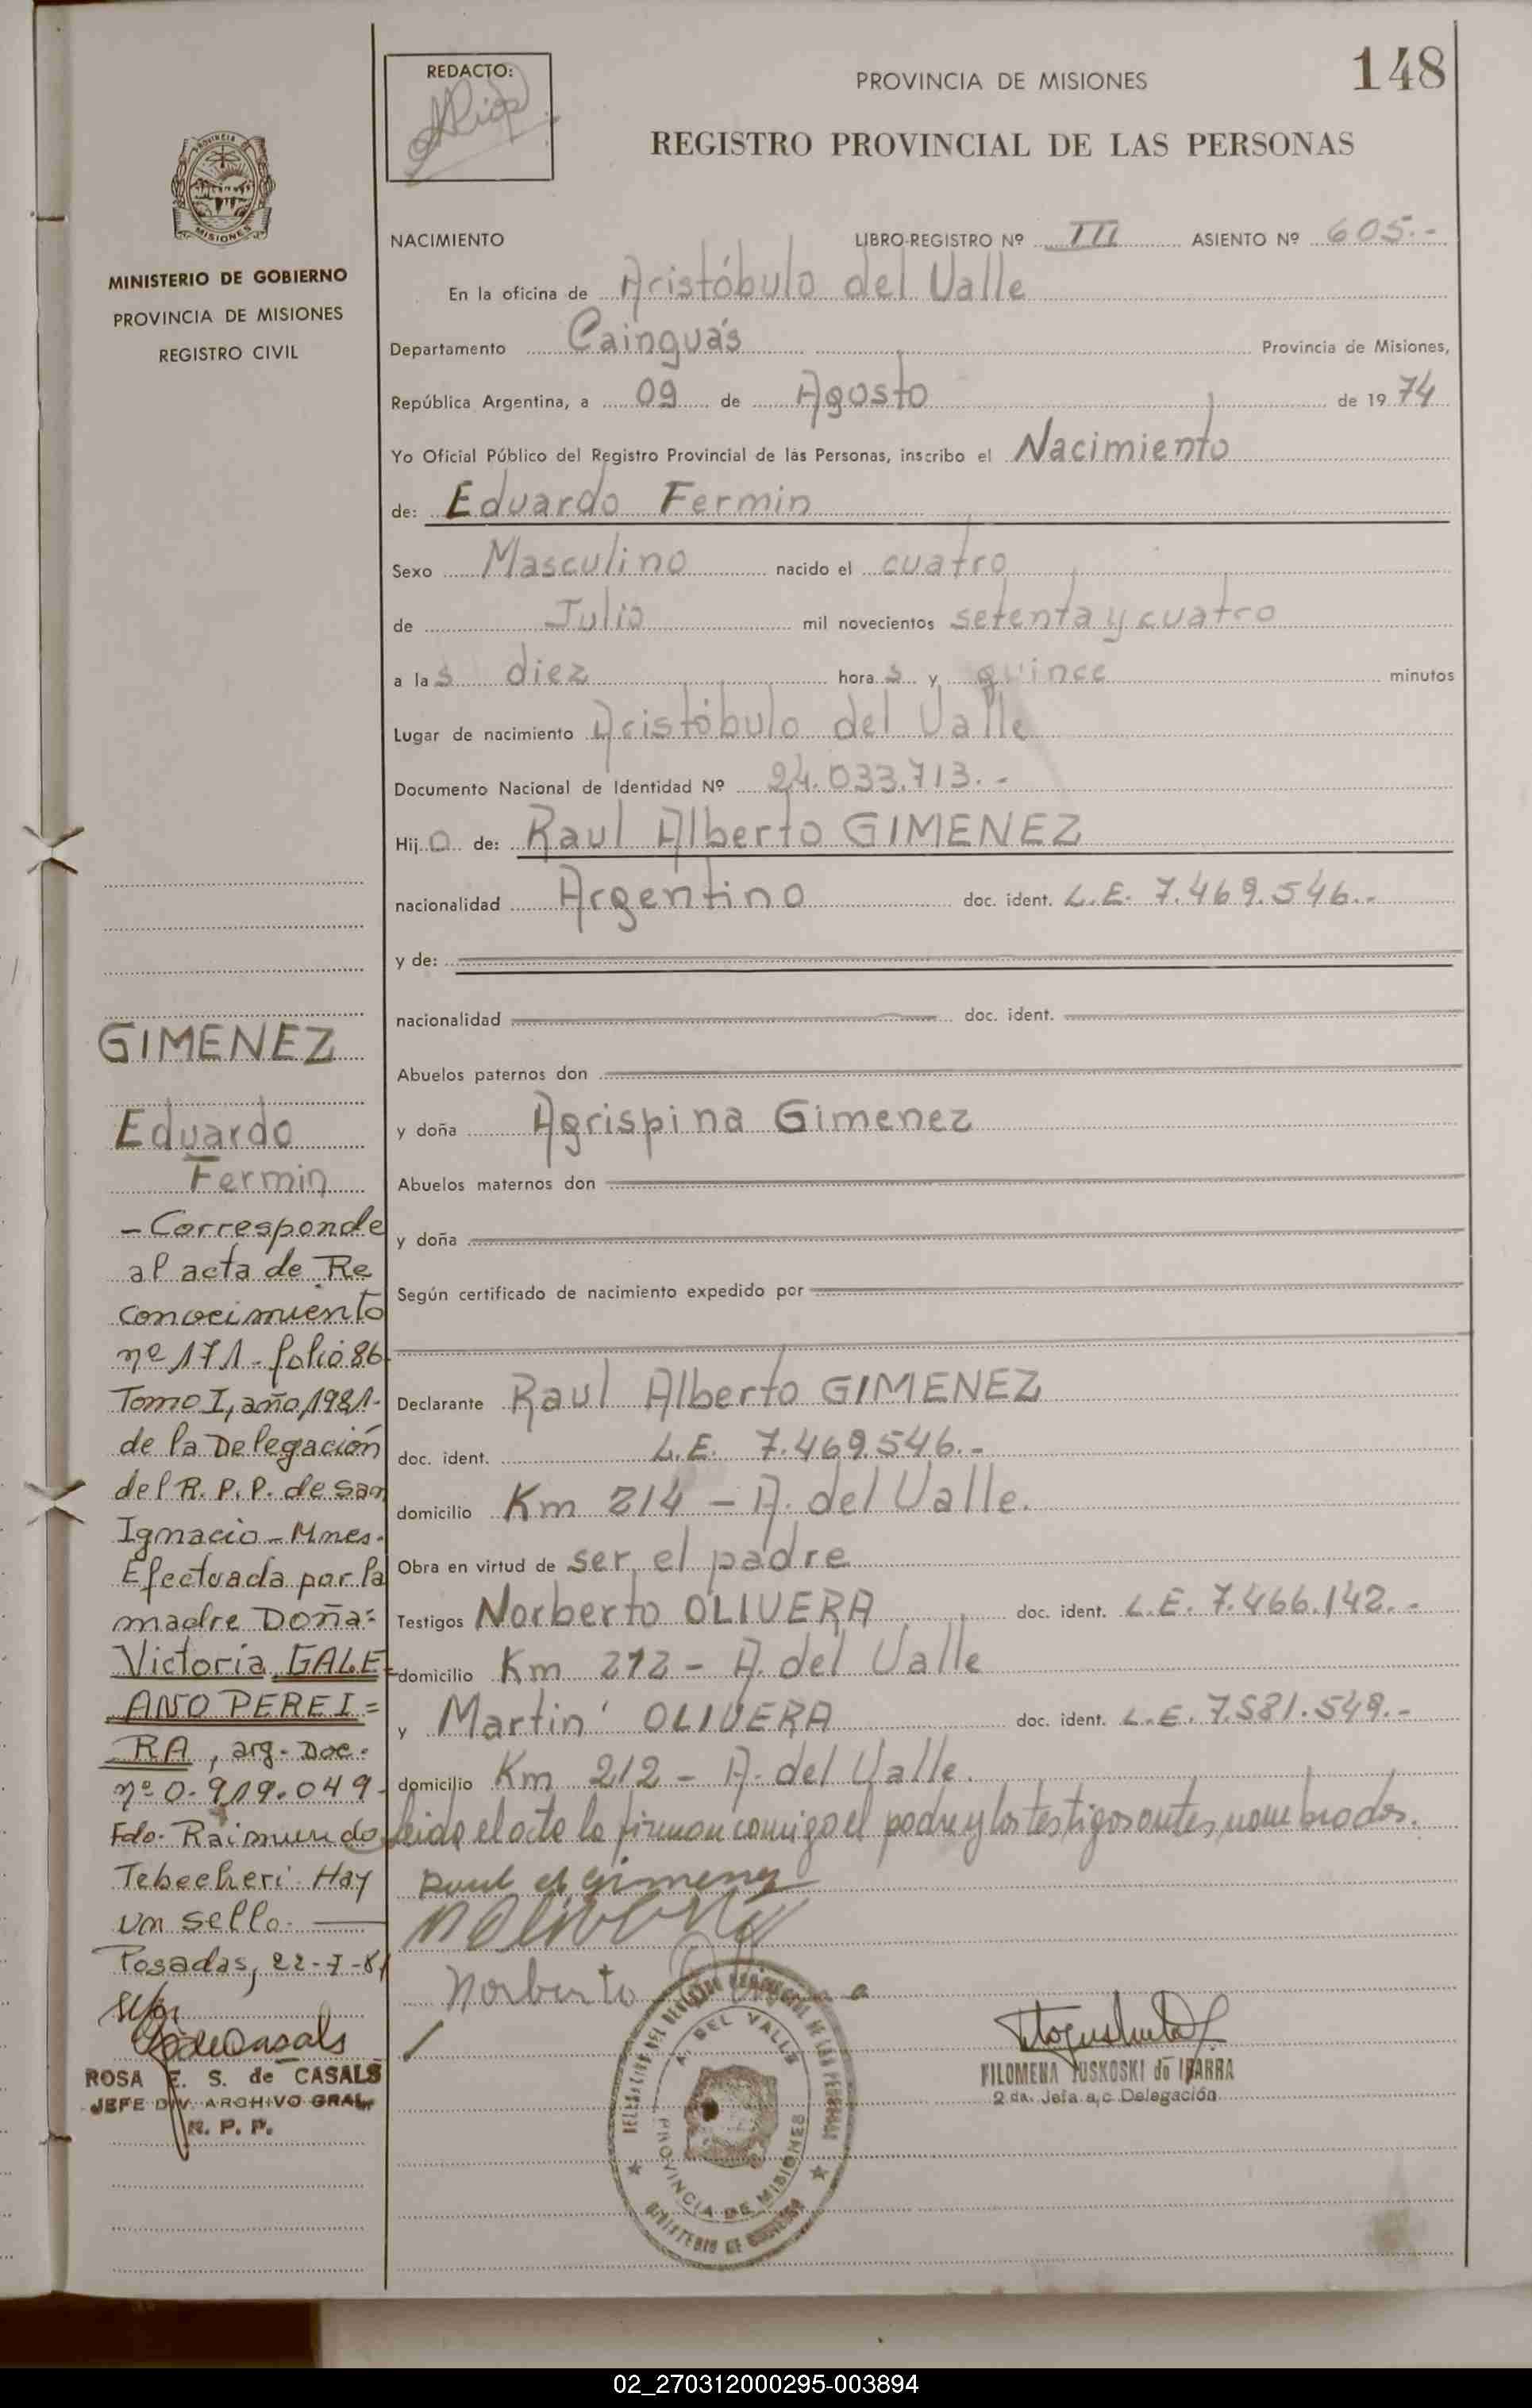 148
REDACTO:
PROVINCIA DE MISIONES
REGISTRO PROVINCIAL DE LAS PERSONAS
MISIONES
MINISTERIO DE GOBIERNO
PROVINCIA DE MISIONES
REGISTRO CIVIL
NACIMIENTO LIBRO-REGISTRO Nº III ASIENTO Nº 605.-
En la oficina de Aristóbulo del Valle
Departamento Cainguás Provincia de Misiones,
República Argentina, a 09 de Agosto de 1974
Yo Oficial Público del Registro Provincial de las Personas, inscribo el Nacimiento
de: Eduardo Fermin
Sexo Masculino nacido el cuatro
de Julio mil novecientos setenta y cuatro
a las diez horas y quince minutos
Lugar de nacimiento Aristóbulo del Valle
Documento Nacional de Identidad Nº 24.033.713.-
Hijo de: Raul Alberto GIMENEZ
nacionalidad Argentino doc. ident. L.E. 7.469.546.-
y de:
nacionalidad doc. ident.
Abuelos paternos don
y doña Agrispina Gimenez
Abuelos maternos don
y doña
Según certificado de nacimiento expedido por
Declarante Raul Alberto GIMENEZ
doc. ident. L.E. 7.469.546.-
domicilio Km 214 - A. del Valle.
Obra en virtud de ser el padre
Testigos Norberto OLIVERA doc. ident. L.E. 7.466.142.-
domicilio Km 212 - A. del Valle
y Martin OLIVERA doc. ident. L.E. 7.581.549.-
domicilio Km 212 - A. del Valle.
leida el acta la firman comigo el padre y los testigos antes nombrados.
Raul A Gimenez
Norberto
GIMENEZ
Eduardo
Fermin
- Corresponde
al acta de Re
conocimiento
nº 171 - folio 86
Tomo I, año 1981-
de la Delegación
del R. P. P. de San
Ignacio - Mnes.
Efectuada por la
madre Doña:
Victoria GALE=
ANO PEREI=
RA, arg. Doc.
nº 0.919.049-
Fdo. Raimundo
Tebecheri. Hay
un sello.
Posadas, 22-7-81
ROSA E. S. de CASALS
JEFE DIV. ARCHIVO GRAL.
R. P. P.
DELEGACION DEL REGISTRO PROVINCIAL DE LAS PERSONAS
A. DEL VALLE
PROVINCIA DE MISIONES
MINISTERIO DE GOBIERNO
FILOMENA TUSKOSKI de IBARRA
2 da. Jefa a/c Delegación
02_270312000295-003894